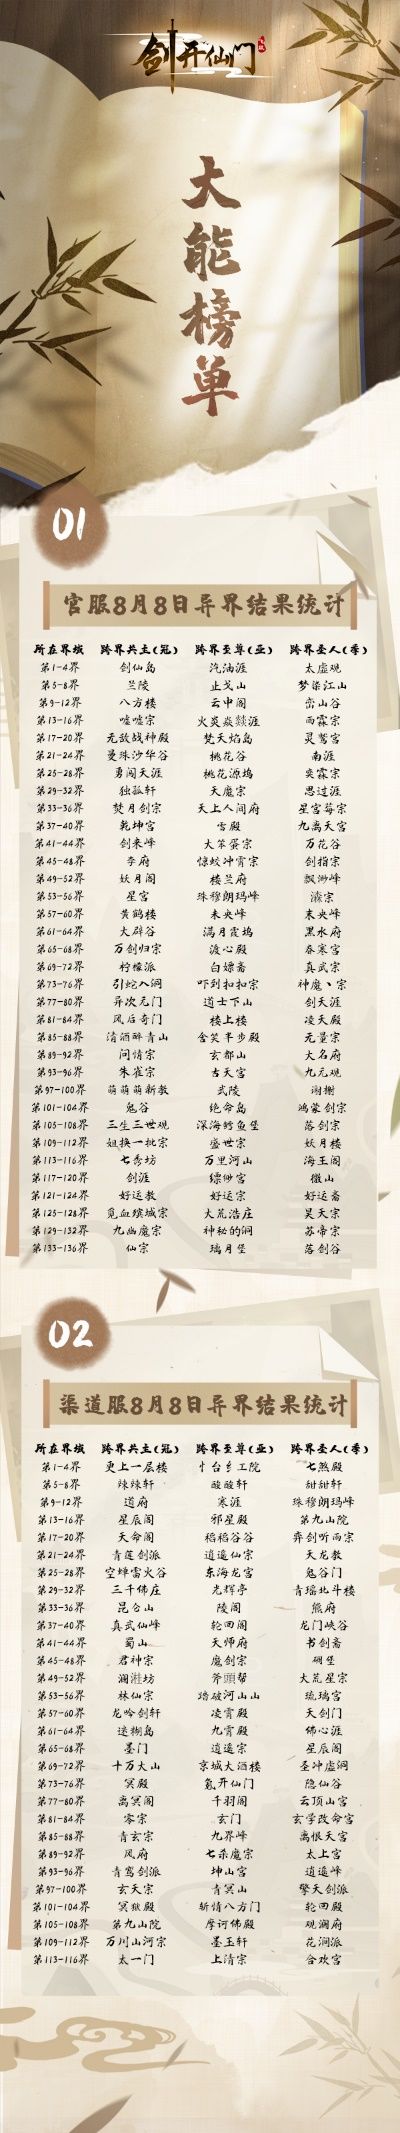 剑开仙门
大能榜单
01
官服8月8日异界结果统计
所在界域 跨界共主(冠) 跨界至尊(亚) 跨界圣人(季)
第1-4界 剑仙岛 汽油涯 太虚观
第5-8界 兰陵 止戈山 梦染江山
第9-12界 八方楼 云中阁 峦山谷
第13-16界 嘘嘘宗 火炎焱燚涯 雨霖宗
第17-20界 无敌战神殿 梵天焰岛 灵鹫宫
第21-24界 曼珠沙华谷 桃花谷 南涯
第25-28界 勇闯天涯 桃花源坞 奕霖宗
第29-32界 独孤轩 天魔宗 思过涯
第33-36界 焚月剑宗 天上人间府 星宫莓宗
第37-40界 乾坤宫 雪殿 九离天宫
第41-44界 剑来峰 大笨蛋宗 万花谷
第45-48界 李府 惊蛟冲霄宗 剑指宗
第49-52界 妖月阁 楼兰府 飘渺峰
第53-56界 星宫 珠穆朗玛峰
第57-60界 黄鹤楼 未央峰 末央峰
第61-64界 大辟谷 满月霞坞 黑水府
第65-68界 万剑归宗 渡心殿 春寒宫
第69-72界 柠檬派 白嫖斋 真武宗
第73-76界 引蛇入洞 吓到扣扣宗 神魔丶宗
第77-80界 异次元门 道士下山 剑天涯
第81-84界 风后奇门 楼上楼 凌天殿
第85-88界 清酒醉青山 含笑半步殿 元量宗
第89-92界 问情宗 玄都山 大名府
第93-96界 朱雀宗 古天宫 九元观
第97-100界 萌萌萌新教 武陵 谢榭
第101-104界 鬼谷 绝命岛 鸿蒙剑宗
第105-108界 三生三世观 深海鳄鱼堡 落剑宗
第109-112界 姐换一批宗 盛世宗 妖月楼
第113-116界 七秀坊 万里河山 海王阁
第117-120界 剑涯 缥缈宫 微山
第121-124界 好运教 好运宗 好运斋
第125-128界 觅血缤城宗 大荒浩庄 昊天宗
第129-132界 九幽魔宗 神秘的洞 苏帝宗
第133-136界 仙宗 璃月堡 落剑谷
02
渠道服8月8日异界结果统计
所在界域 跨界共主(冠) 跨界至尊(亚) 跨界圣人(季)
第1-4界 更上一层楼 七煞殿
第5-8界 辣辣轩 酸酸轩 甜甜轩
第9-12界 道府 寒涯 珠穆朗玛峰
第13-16界 星辰阁 邪星殿 第九山院
第17-20界 天命阁 稻稻谷谷 弈剑听雨宗
第21-24界 青莲剑派 逍遥仙宗 天龙教
第25-28界 空蝉雷火谷 东海龙宫 鬼谷门
第29-32界 三千佛庄 光辉亭 青瑶北斗楼
第33-36界 昆仑山 陵阁 熊府
第37-40界 真武仙峰 轮回阁 龙门峡谷
第41-44界 蜀山 天师府 书剑斋
第45-48界 君神宗 魔剑宗 碉堡
第49-52界 斧頭帮 大荒星宗
第53-56界 林仙宗 踏破河山山 琉璃宫
第57-60界 龙吟剑轩 凌霄殿 天剑门
第61-64界 迷糊岛 九霄殿 佛心涯
第65-68界 墨门 逍遥宗 星辰阁
第69-72界 十万大山 京城大酒楼 圣冲虚洞
第73-76界 冥殿 氪开仙门 隐仙谷
第77-80界 离冥阁 千羽阁 云顶山宫
第81-84界 零宗 玄门 玄学改命宫
第85-88界 青玄宗 九界峰 离恨天宫
第89-92界 风府 七杀魔宗 太上宫
第93-96界 青鸾剑派 坤山宫 逍遥峰
第97-100界 玄天宗 青冥山 擎天剑派
第101-104界 冥狱殿 斩情八方门 轮回殿
第105-108界 第九山院 摩诃佛殿 观澜府
第109-112界 万川山河宗 墨玉轩 花涧派
第113-116界 太一门 上清宗 合欢宫